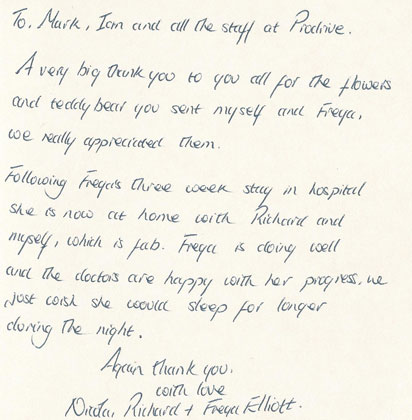 To, Mark, Ian and all the staff at Prodrive.
A very big thank you to you all for the flowers
and teddybear you sent myself and Freya,
we really appreciated them.
Following Freya's three week stay in hospital
she is now at home with Richard and
myself, which is fab. Freya is doing well
and the doctors are happy with her progress, we
just wish she would sleep for longer
during the night.
Again thank you.
with love
Nicola, Richard + Freya Elliott.